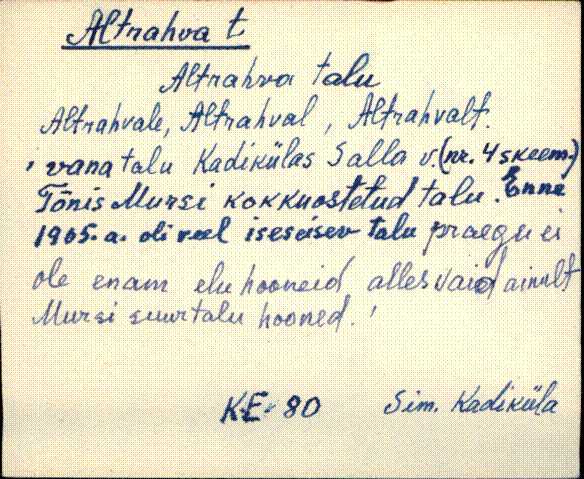 Altrahva t
Altrahva talu
Altrahvale, Altrahval, Altrahvalt.
' vana talu Kadikülas Salla v. (nr. 4 skeem.)
Tõnis Mursi kokkuostetud talu. Enne
1905. a. oli veel iseseisev talu praegu ei
ole enam elu hooneid alles vaid ainult
Mursi suurtalu hooned.'
KE- 80 Sim. Kadiküla